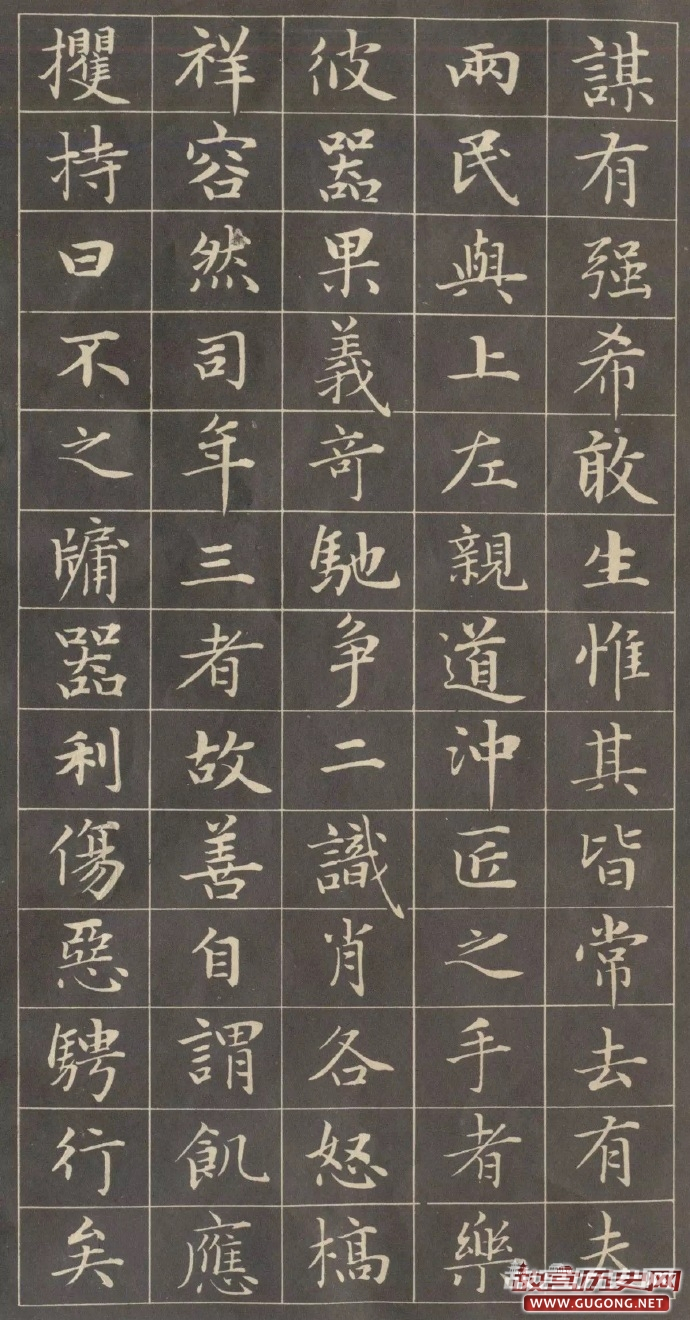 謀有强希敢生惟其皆常去有夫
兩民與上左親道沖匠之手者樂
彼器果義奇馳爭二識肖各怒槁
祥容然司年三者故善自謂飢應
攫持曰不之牗器利傷惡騁行矣
故宫历史网
WWW.GUGONG.NET